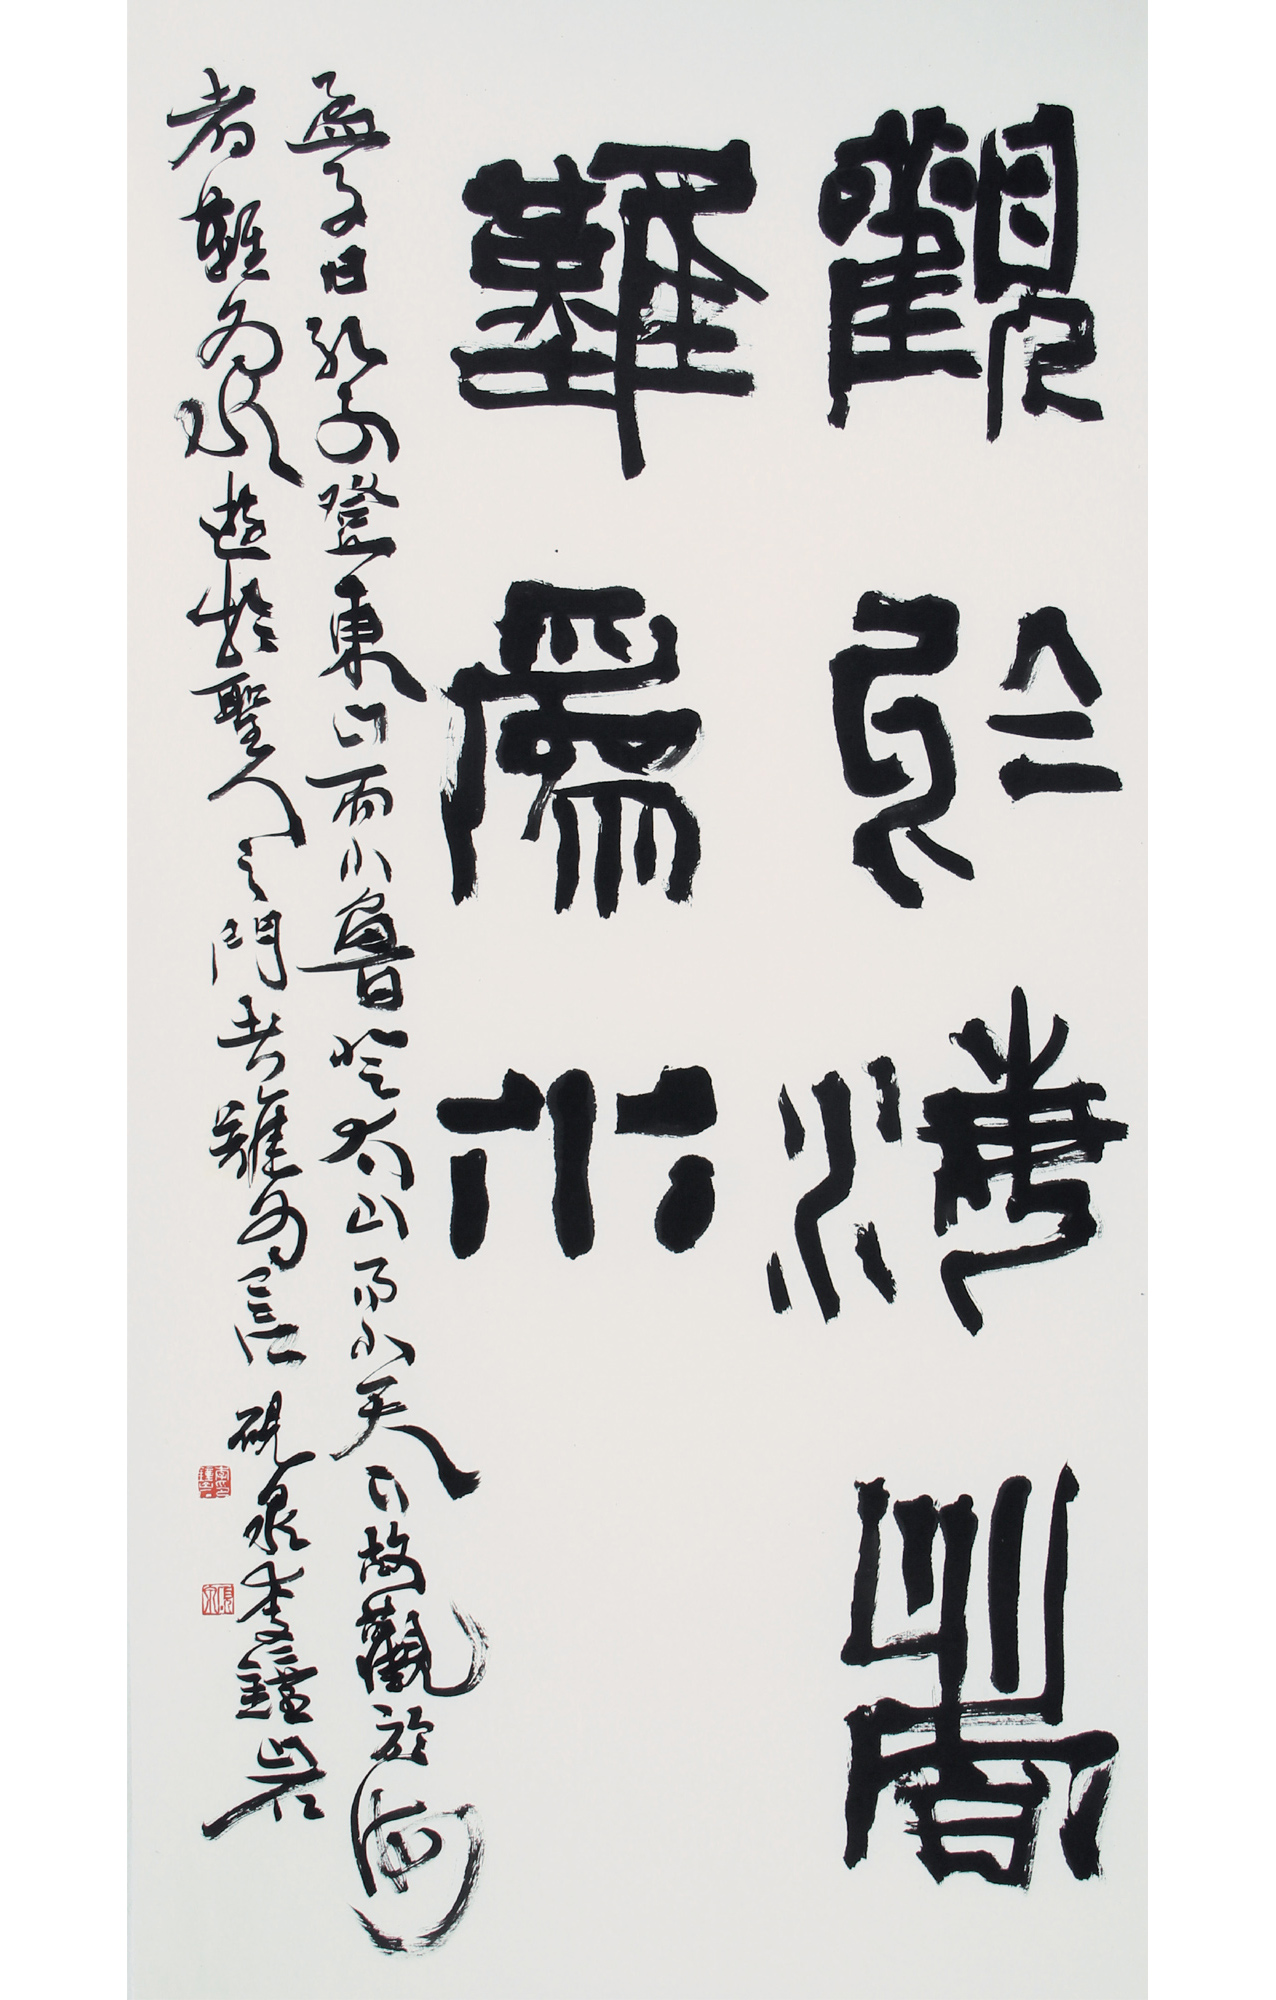 觀於海者
難爲水
孟子曰孔子登東山而小魯登太山而小天下故觀於海
者難为水遊於聖人之門者難为言 硯泉李